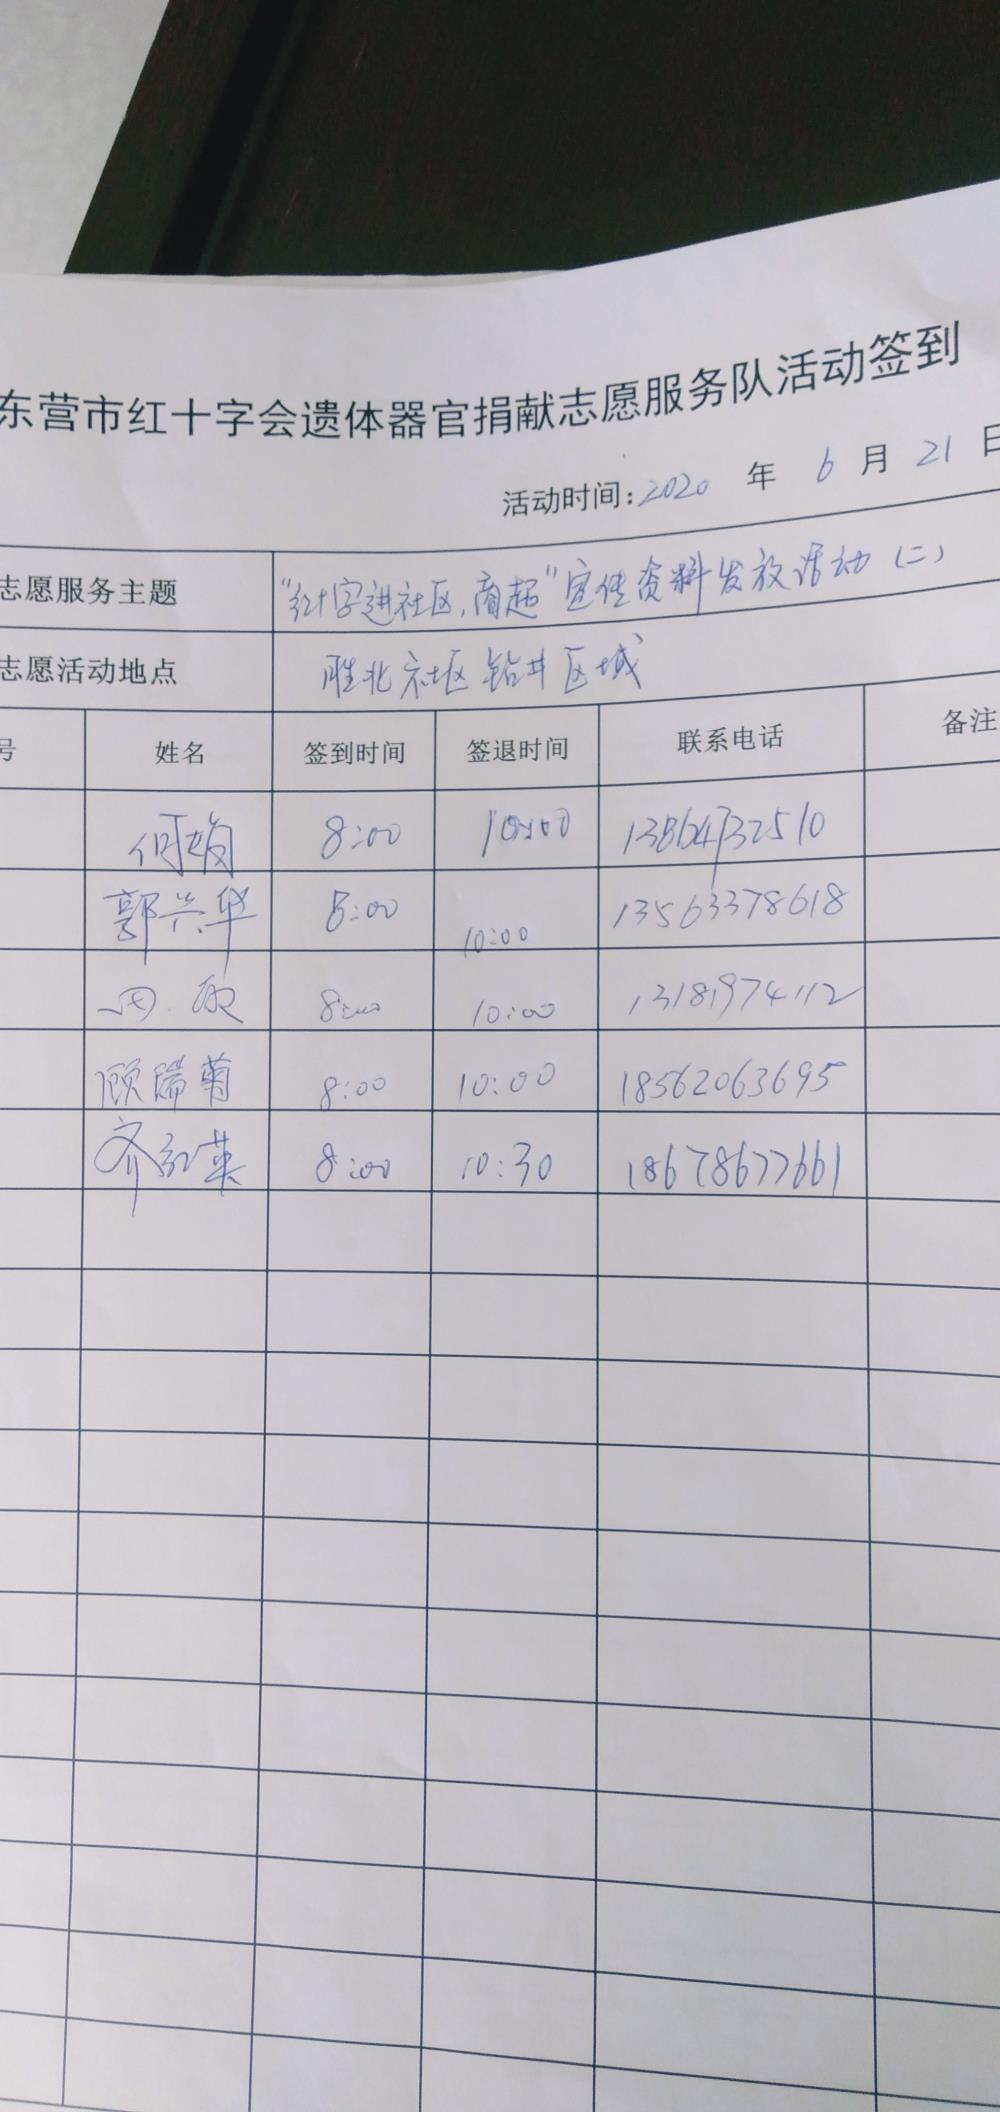 东营市红十字会遗体器官捐献志愿服务队活动签到
活动时间:2020 年 6 月 21 日
志愿服务主题 "红十字进社区,商超"宣传资料发放活动(二)
志愿活动地点 胜北社区钻井区域
号 姓名 签到时间 签退时间 联系电话 备注
8:00 10:00 13864732510
郭兴华 8:00 10:00 13563378618
8:00 10:00 13181974112
顾瑞菊 8:00 10:00 18562063695
齐红英 8:00 10:30 18678677661